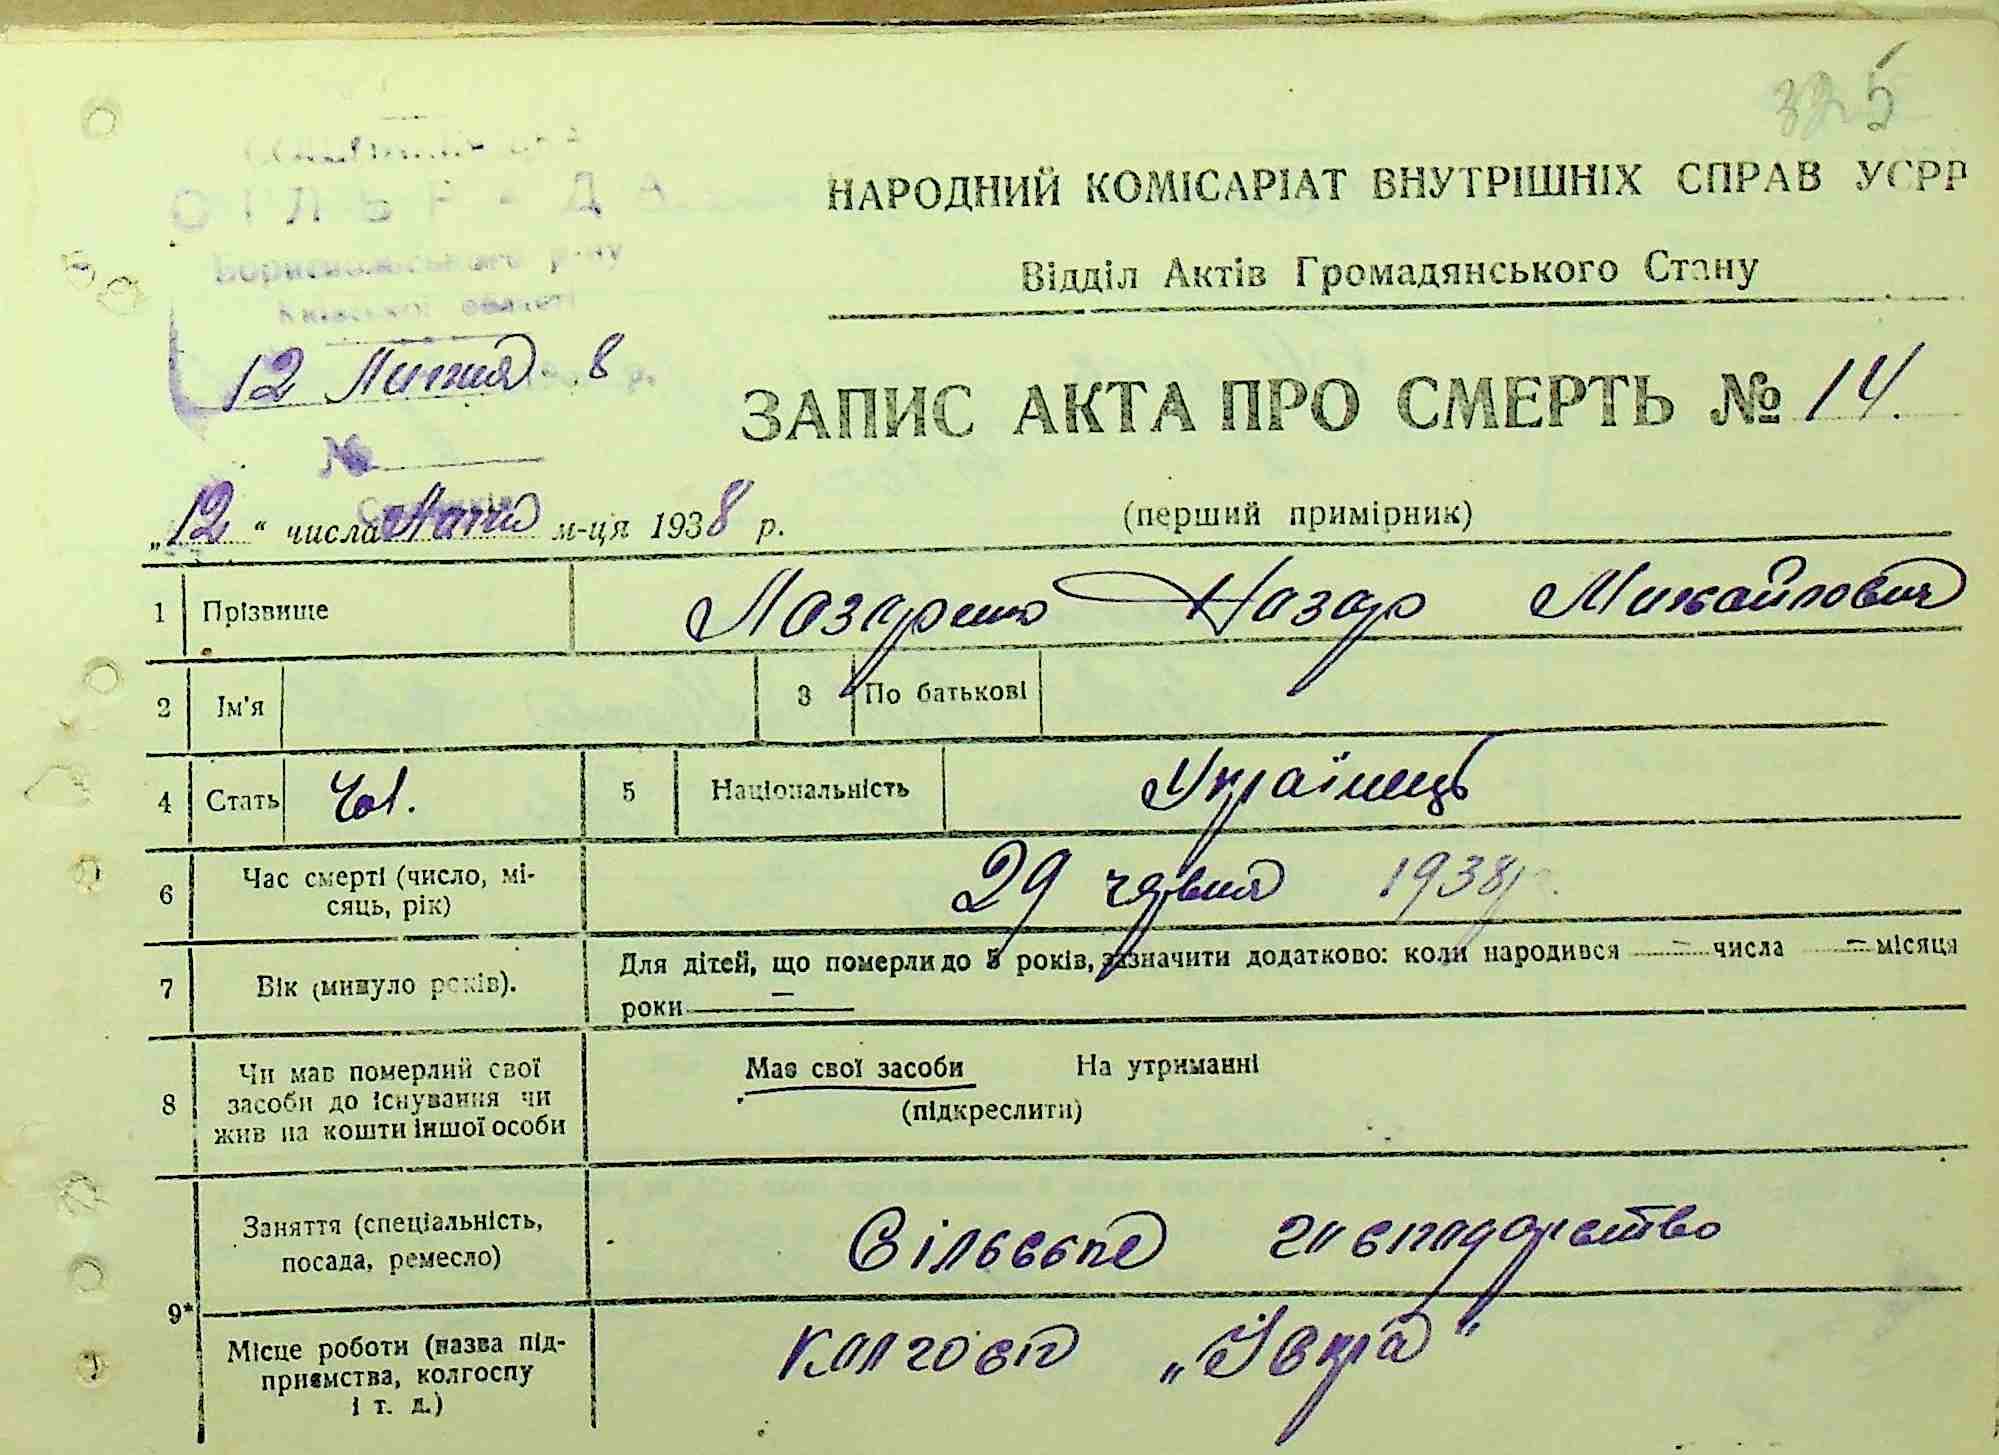 325
СІЛЬРАДА
Бориспільського р-ну
Київської області
12 Липня 8 р.
№
НАРОДНИЙ КОМІСАРІАТ ВНУТРІШНІХ СПРАВ УСРР
Відділ Актів Громадянського Стану
ЗАПИС АКТА ПРО СМЕРТЬ № 14.
„12“ числа Липня м-ця 1938 р.
(перший примірник)
1 Прізвище Лазаренко Назар Михайлович
2 Ім'я 3 По батькові
4 Стать Чол. 5 Національність Українець
6 Час смерті (число, мі-
сяць, рік) 29 червня 1938 р.
7 Вік (минуло років). Для дітей, що померли до 5 років, зазначити додатково: коли народився — числа — місяця
роки —
8 Чи мав померлий свої
засоби до існування чи
жив на кошти іншої особи
Має свої засоби На утриманні
(підкреслити)
9* Заняття (спеціальність,
посада, ремесло) Сільське господарство
Місце роботи (назва під-
приємства, колгоспу
і т. д.) Колгосп „Іскра“